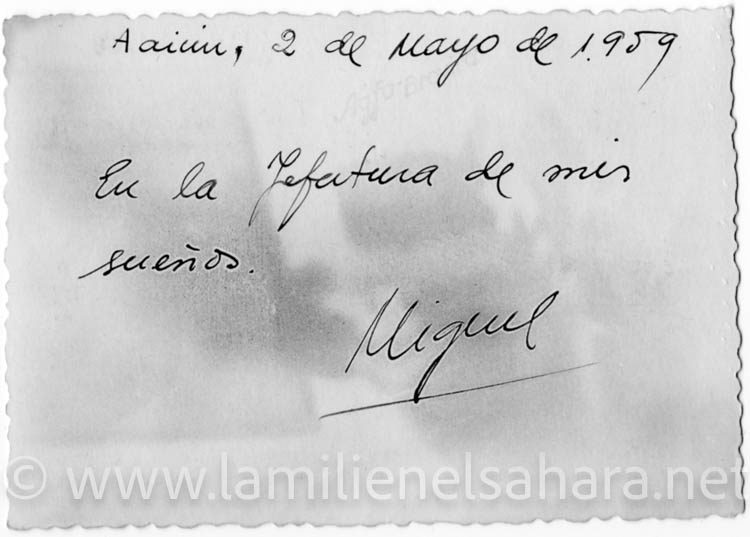 Aaiun, 2 de Mayo de 1.959
En la Jefatura de mis
sueños.
Miguel
© www.lamilienelsahara.net